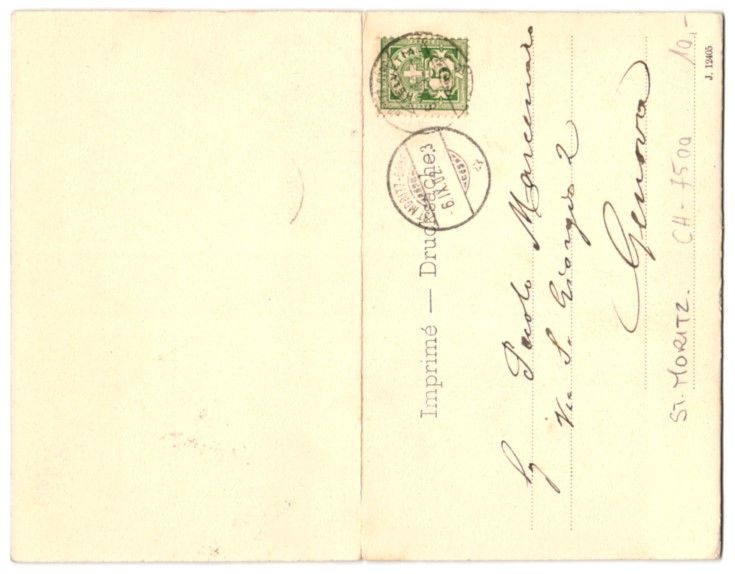 HELVETIA
5
ST. MORITZ-
6.IX.02.-3
Imprimé — Drucksache.
Sg Paolo
Via S. Giorgio 2
Genova
ST. MORITZ. CH-7500 10,-
J. 12405